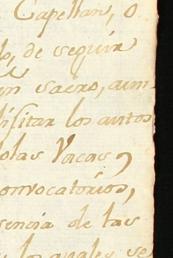 Capellan, o
do, de seguir
en sacro, aun
lisitar los autos
olas Vacas,
convocatorios,
sencia de las
los quales se